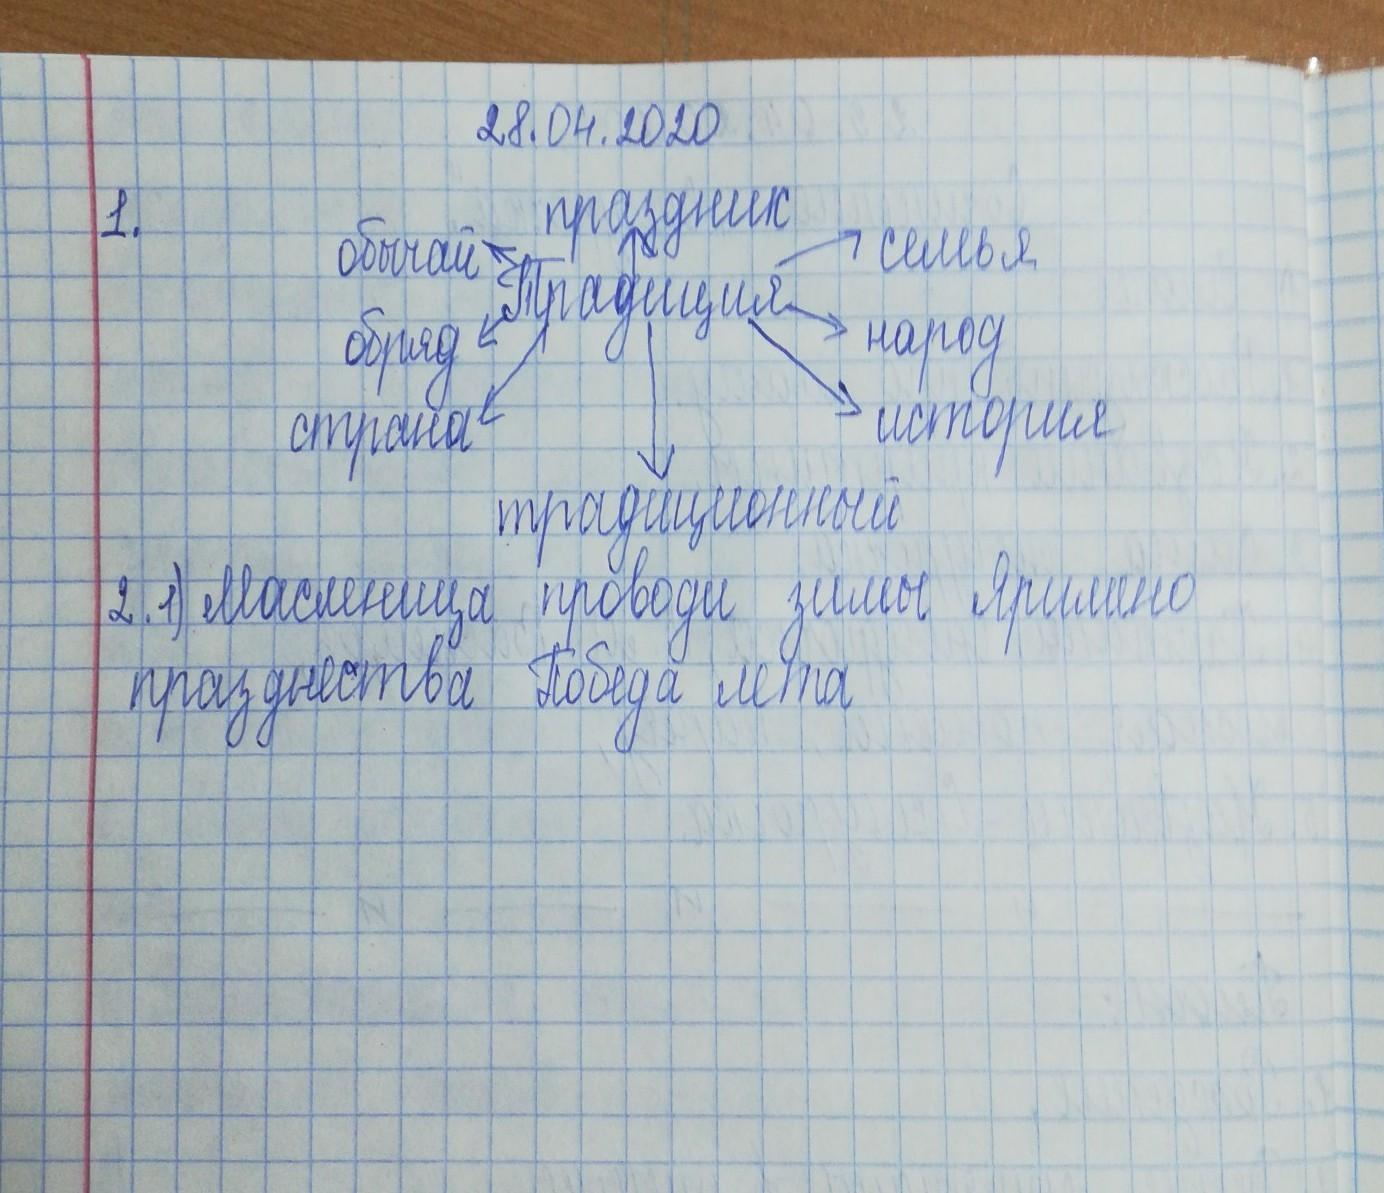 28.04.2020
1.
праздник
обычай
семья
Традиция
обряд
народ
страна
история
традиционный
2. 1) Масленица проводи зимы Ярилино
празднества Победа лета